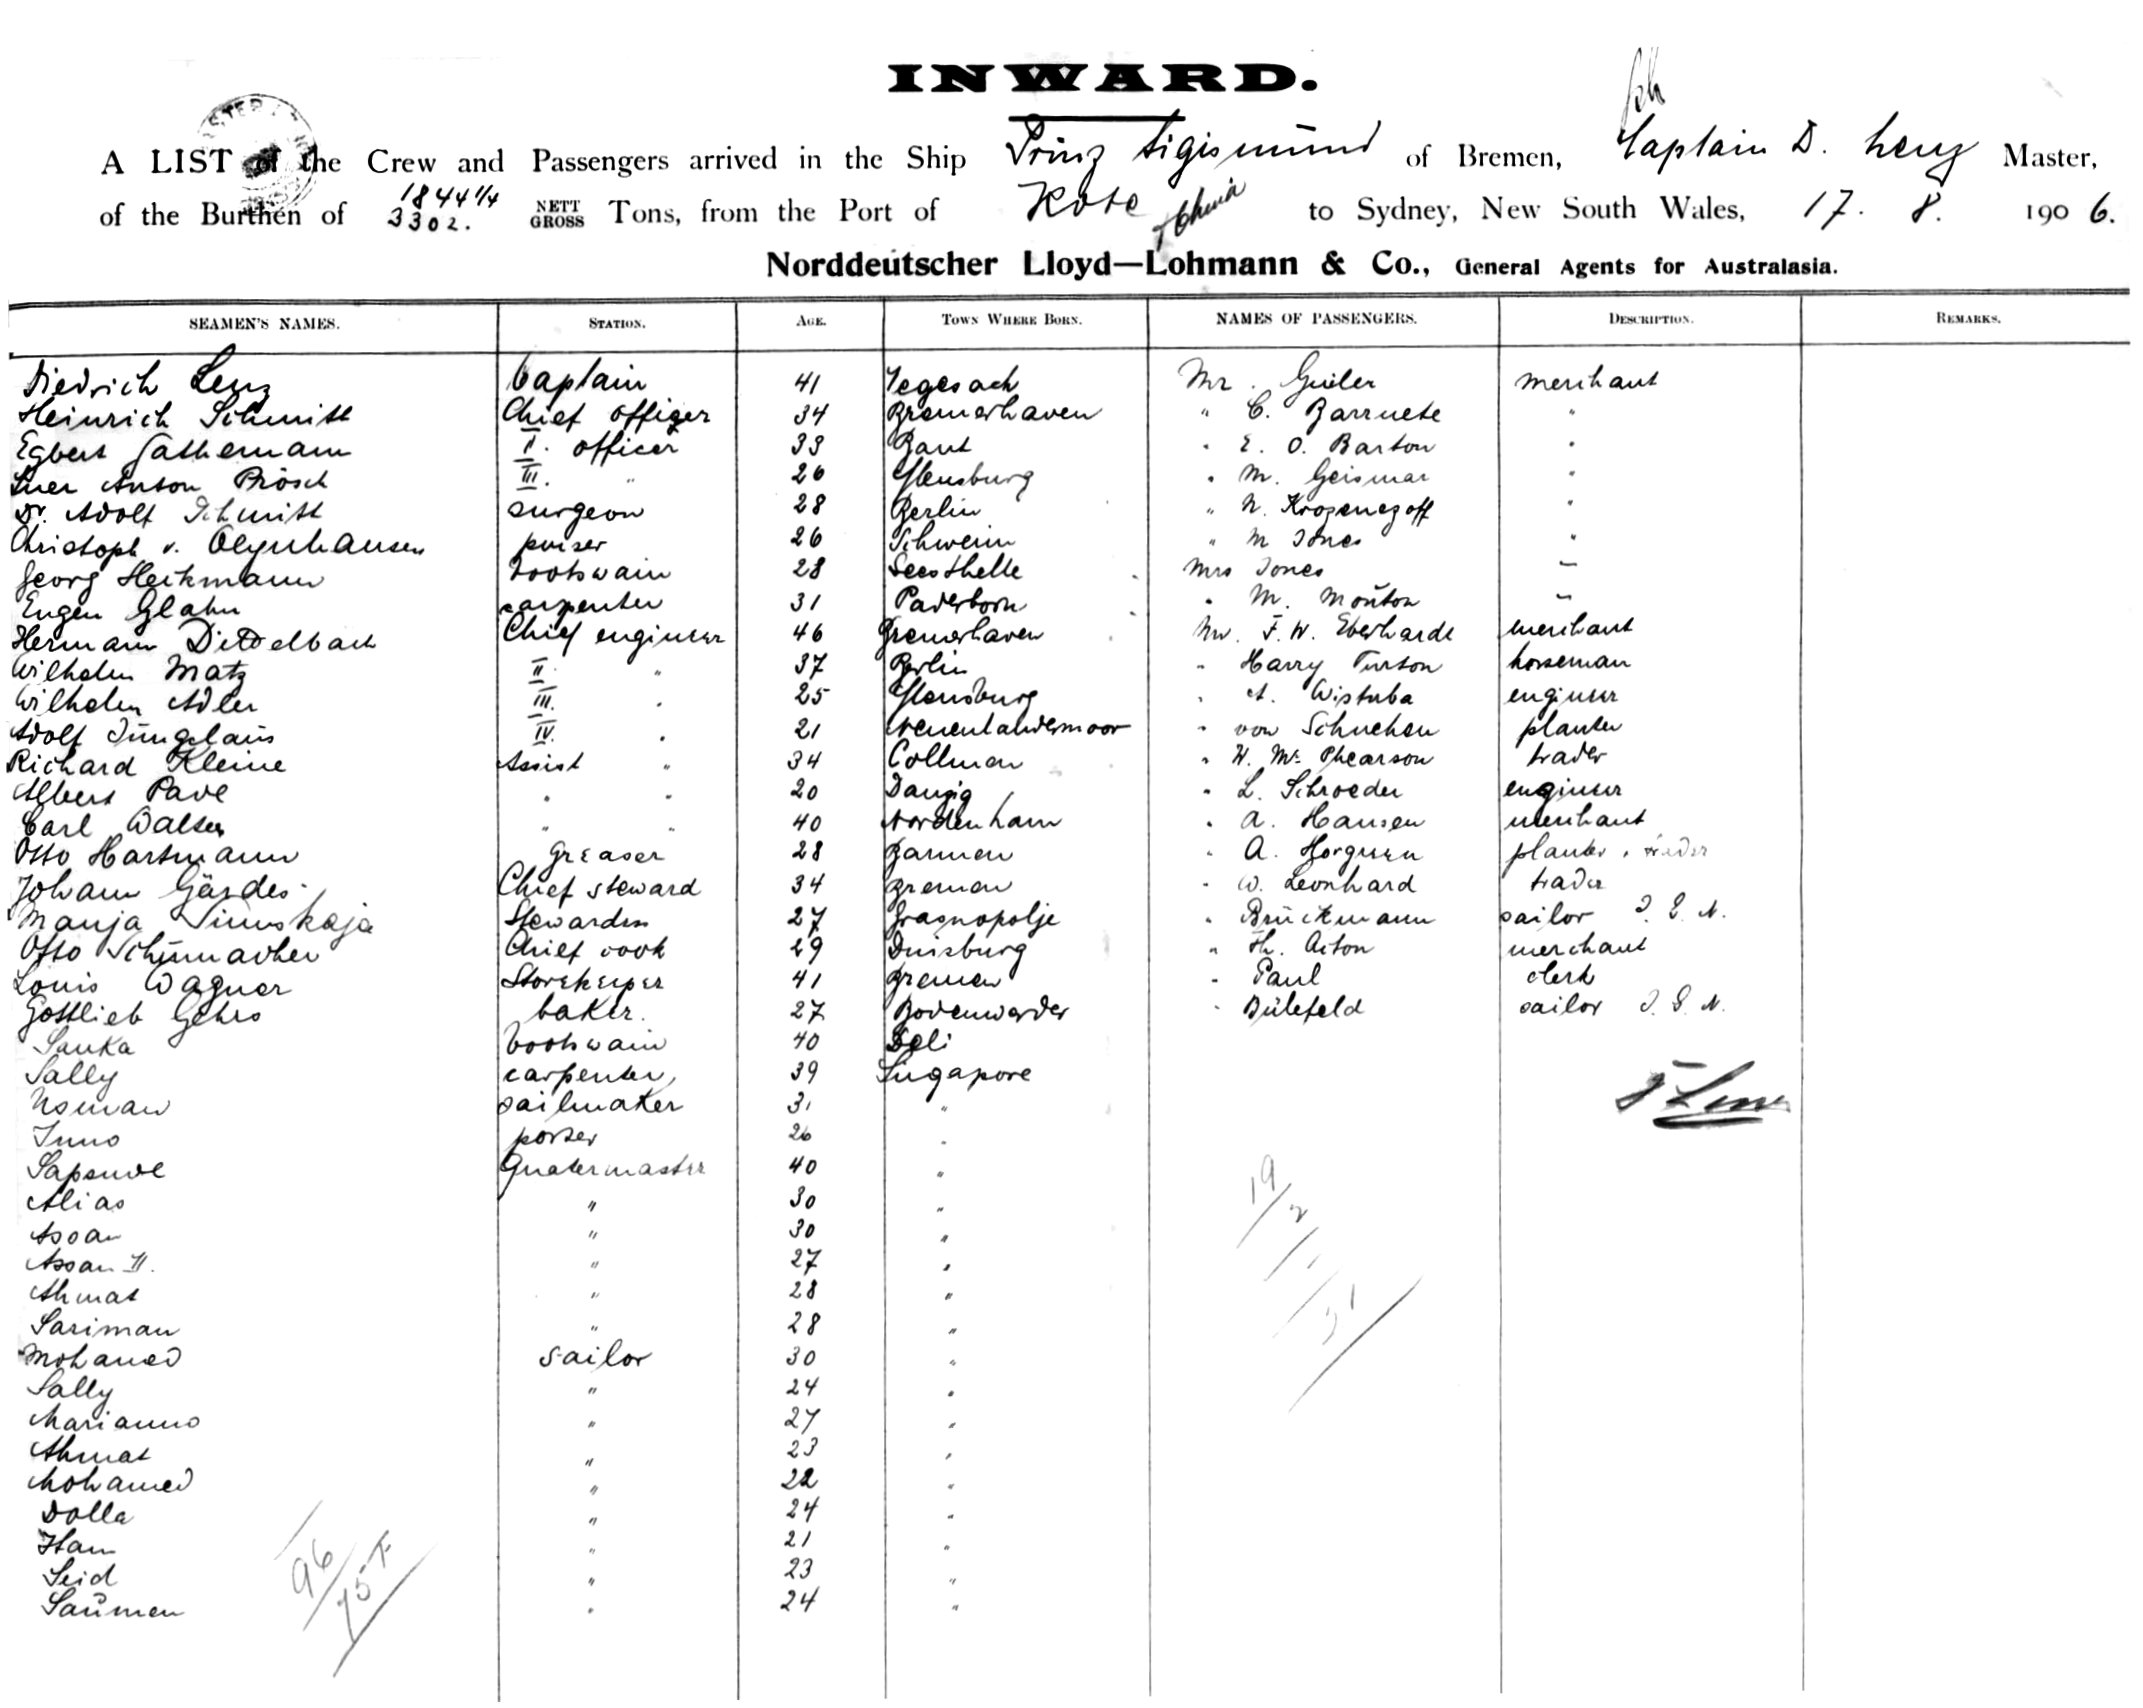 INWARD.
A LIST of the Crew and Passengers arrived in the Ship Prinz Sigismund of Bremen, Captain D. Lenz Master,
of the Burthen of 1844 1/4 3302. NETT GROSS Tons, from the Port of Kobe + China to Sydney, New South Wales, 17. 8. 1906.
Norddeutscher Lloyd—Lohmann & Co., General Agents for Australasia.
SEAMEN'S NAMES. STATION. AGE. TOWN WHERE BORN. NAMES OF PASSENGERS. DESCRIPTION. REMARKS.
Diedrich Lenz Captain 41 Vegesack Mr. Geiler merchant
Heinrich Schmitt Chief officer 34 Bremerhaven " C. Barruete "
Egbert Gathemann II. officer 33 Bant " E. O. Barton "
Anton Prösch III. " 26 Flensburg " M. Geismar "
Dr. Adolf Schmitt surgeon 28 Berlin " N. "
Christoph v. Oeynhausen purser 26 Schwerin " M Jones "
Georg Heckmann bootswain 28 Mrs Jones "
Eugen Glahn carpenter 31 Paderborn " M. Mouton "
Hermann Dittelbach Chief engineer 46 Bremerhaven Mr. F. W. Eberhardt merchant
Wilhelm Matz II " 37 Berlin " Harry Turton horseman
Wilhelm Adler III. " 25 Flensburg " A. Wistuba engineer
Adolf Jünglaus IV. " 21 Neuenlandermoor " von Schuehen planter
Richard Kleine Assist " 34 Collmen " W. Mc Phearson trader
Albert Pave " " 20 Danzig " L. Schroeder engineer
Carl Walter " " 40 Nordenham " A. Hansen merchant
Otto Hartmann Greaser 28 Barmen " A. planter & trader
Johann Gerdes Chief steward 34 Bremen " W. Leonhard trader
Manja Simskaja Stewardess 27 Grasnopolje " Brückmann sailor I. G. N.
Otto Schumacher Chief cook 29 Duisburg " Th. Acton merchant
Louis Wagner Storekeeper 41 Bremen " Paul clerk
Gottlieb Gehrs baker. 27 Bodenwerder " Bülefeld sailor I. G. N.
Sanka bootswain 40 Deli
Sally carpenter, 39 Singapore
Usman sailmaker 31 "
Inno porter 26 "
Sapenve Quatermaster 40 "
Alias " 30 "
Assan " 30 "
Assan II. " 27 "
Ahmat " 28 "
Sariman " 28 "
Mohamed sailor 30 "
Sally " 24 "
Marianno " 27 "
Ahmat " 23 "
Mohamed " 22 "
Dolla " 24 "
Itam " 21 "
Seid " 23 "
Saumen " 24 "
96
19
2